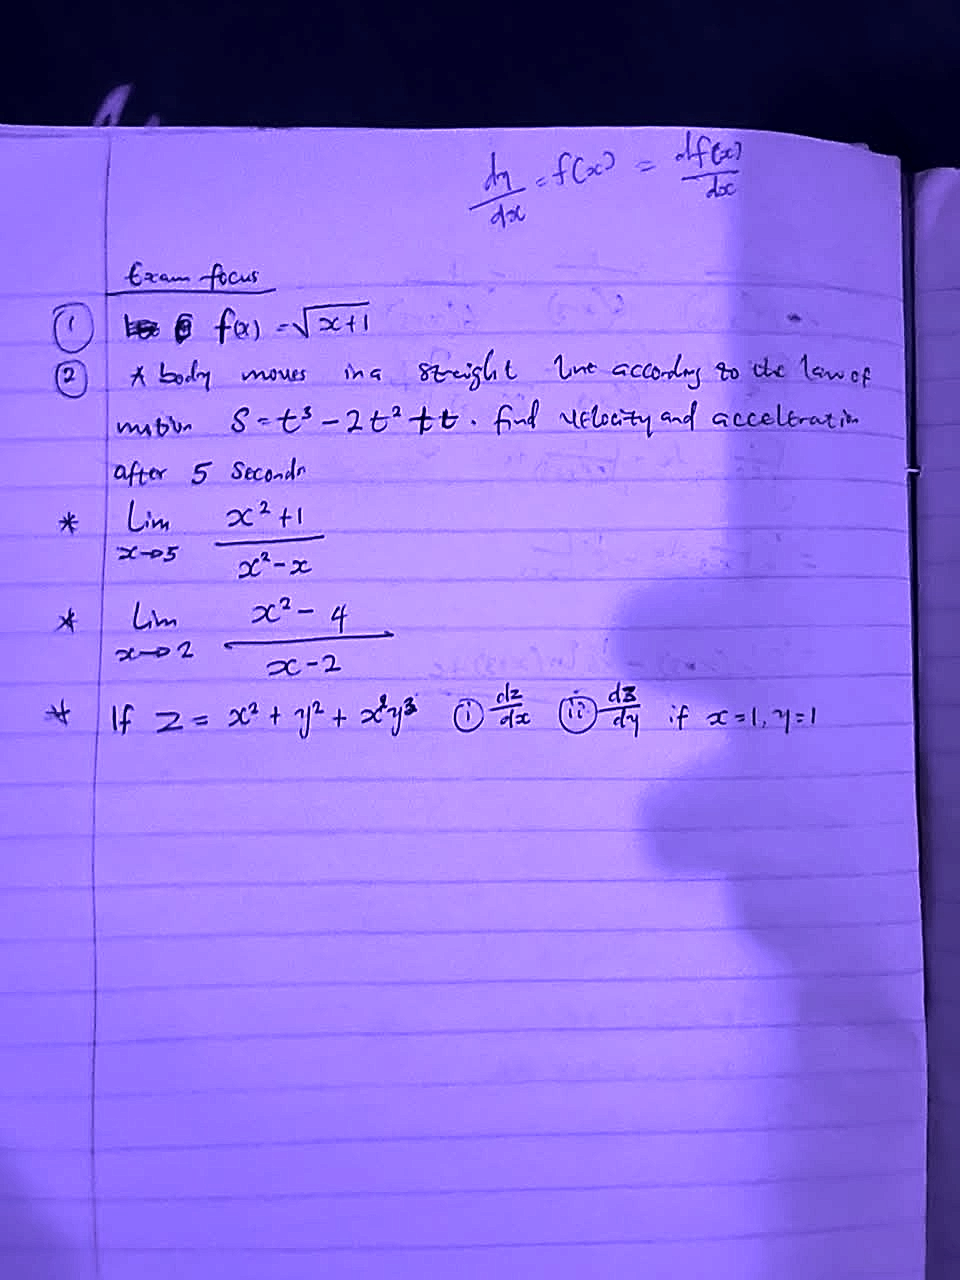 dy/dx = f(x) = df(x)/dx
Exam focus
① f(x) = √x+1
② A body moves in a streight line according to the law of
motion S = t³ - 2t² + t. find velocity and acceleration
after 5 seconds
* Lim x→5 x²+1 / x²-x
* Lim x→2 x²- 4 / x-2
* If Z = x² + y² + x²y³ ⓘ dz/dx ⓘⓘ dz/dy if x=1, y=1